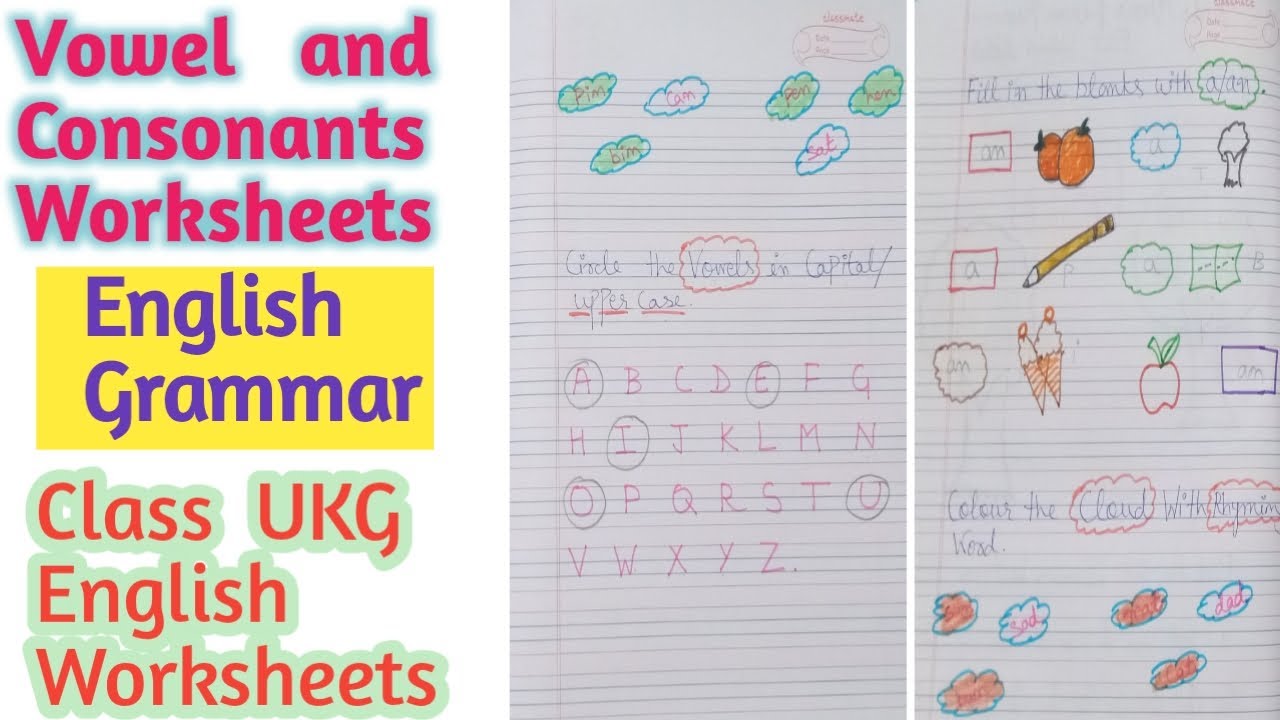 Vowel and
Consonants
Worksheets
English
Grammar
Class UKG
English
Worksheets
classmate
Date
Page
pim can pen hen
bim sat
Circle the Vowels in Capital/
upper case.
A B C D E F G
H I J K L M N
O P Q R S T U
V W X Y Z.
classmate
Date
Page
Fill in the blanks with a/an.
an a
a p a B
an i an
Colour the Cloud With Rhyming
Word.
sad dad